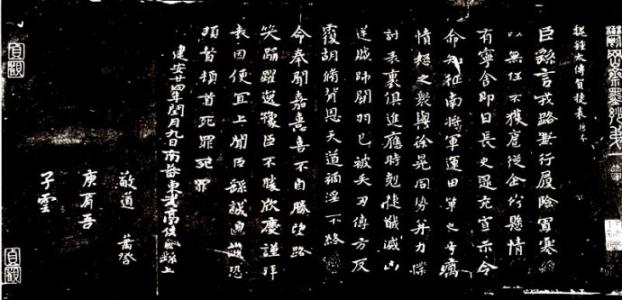 魏鍾太傅賀捷表
臣繇言戎路兼行履險冒寒臣
以無任不獲扈從企佇懸情無
有寧舍即日長史逯充宣示令
命知征南將軍運田單之奇厲
憤怒之眾與徐晃同勢并力撲
討表裏俱進應時剋捷馘滅凶
逆賊帥關羽已被矢刃傅方反
覆胡脩背恩天道禍淫不終厥
命奉聞嘉憙喜不自勝望路載
笑踊躍逸豫臣不勝欣慶謹拜
表因便宜上聞臣繇誠惶誠恐
頓首頓首死罪死罪
建安廿四年閏月九日南蕃東武亭侯臣繇上
敬道
庾肩吾
子雲
貞觀
貞觀